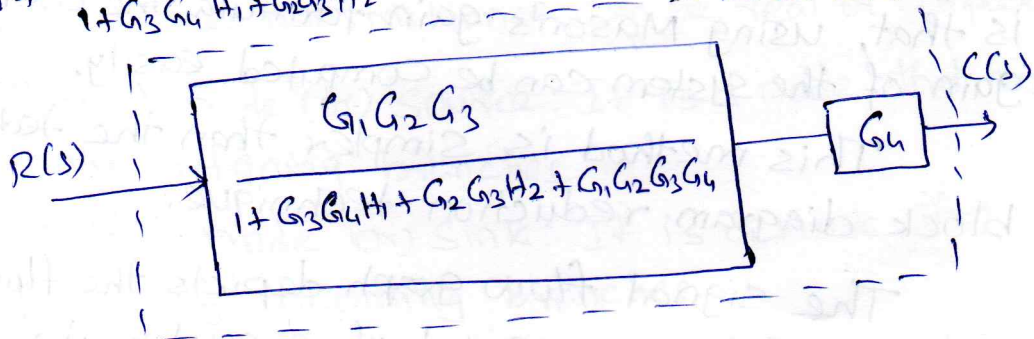 1+G3G4H1+G2G3H2
R(s)
G1G2G3
1+G3G4H1+G2G3H2+G1G2G3G4
G4
C(s)